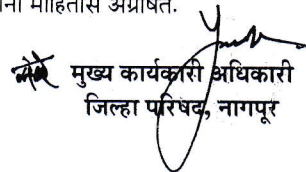 माहितीस अग्रेषित.
मुख्य कार्यकारी अधिकारी
जिल्हा परिषद, नागपूर